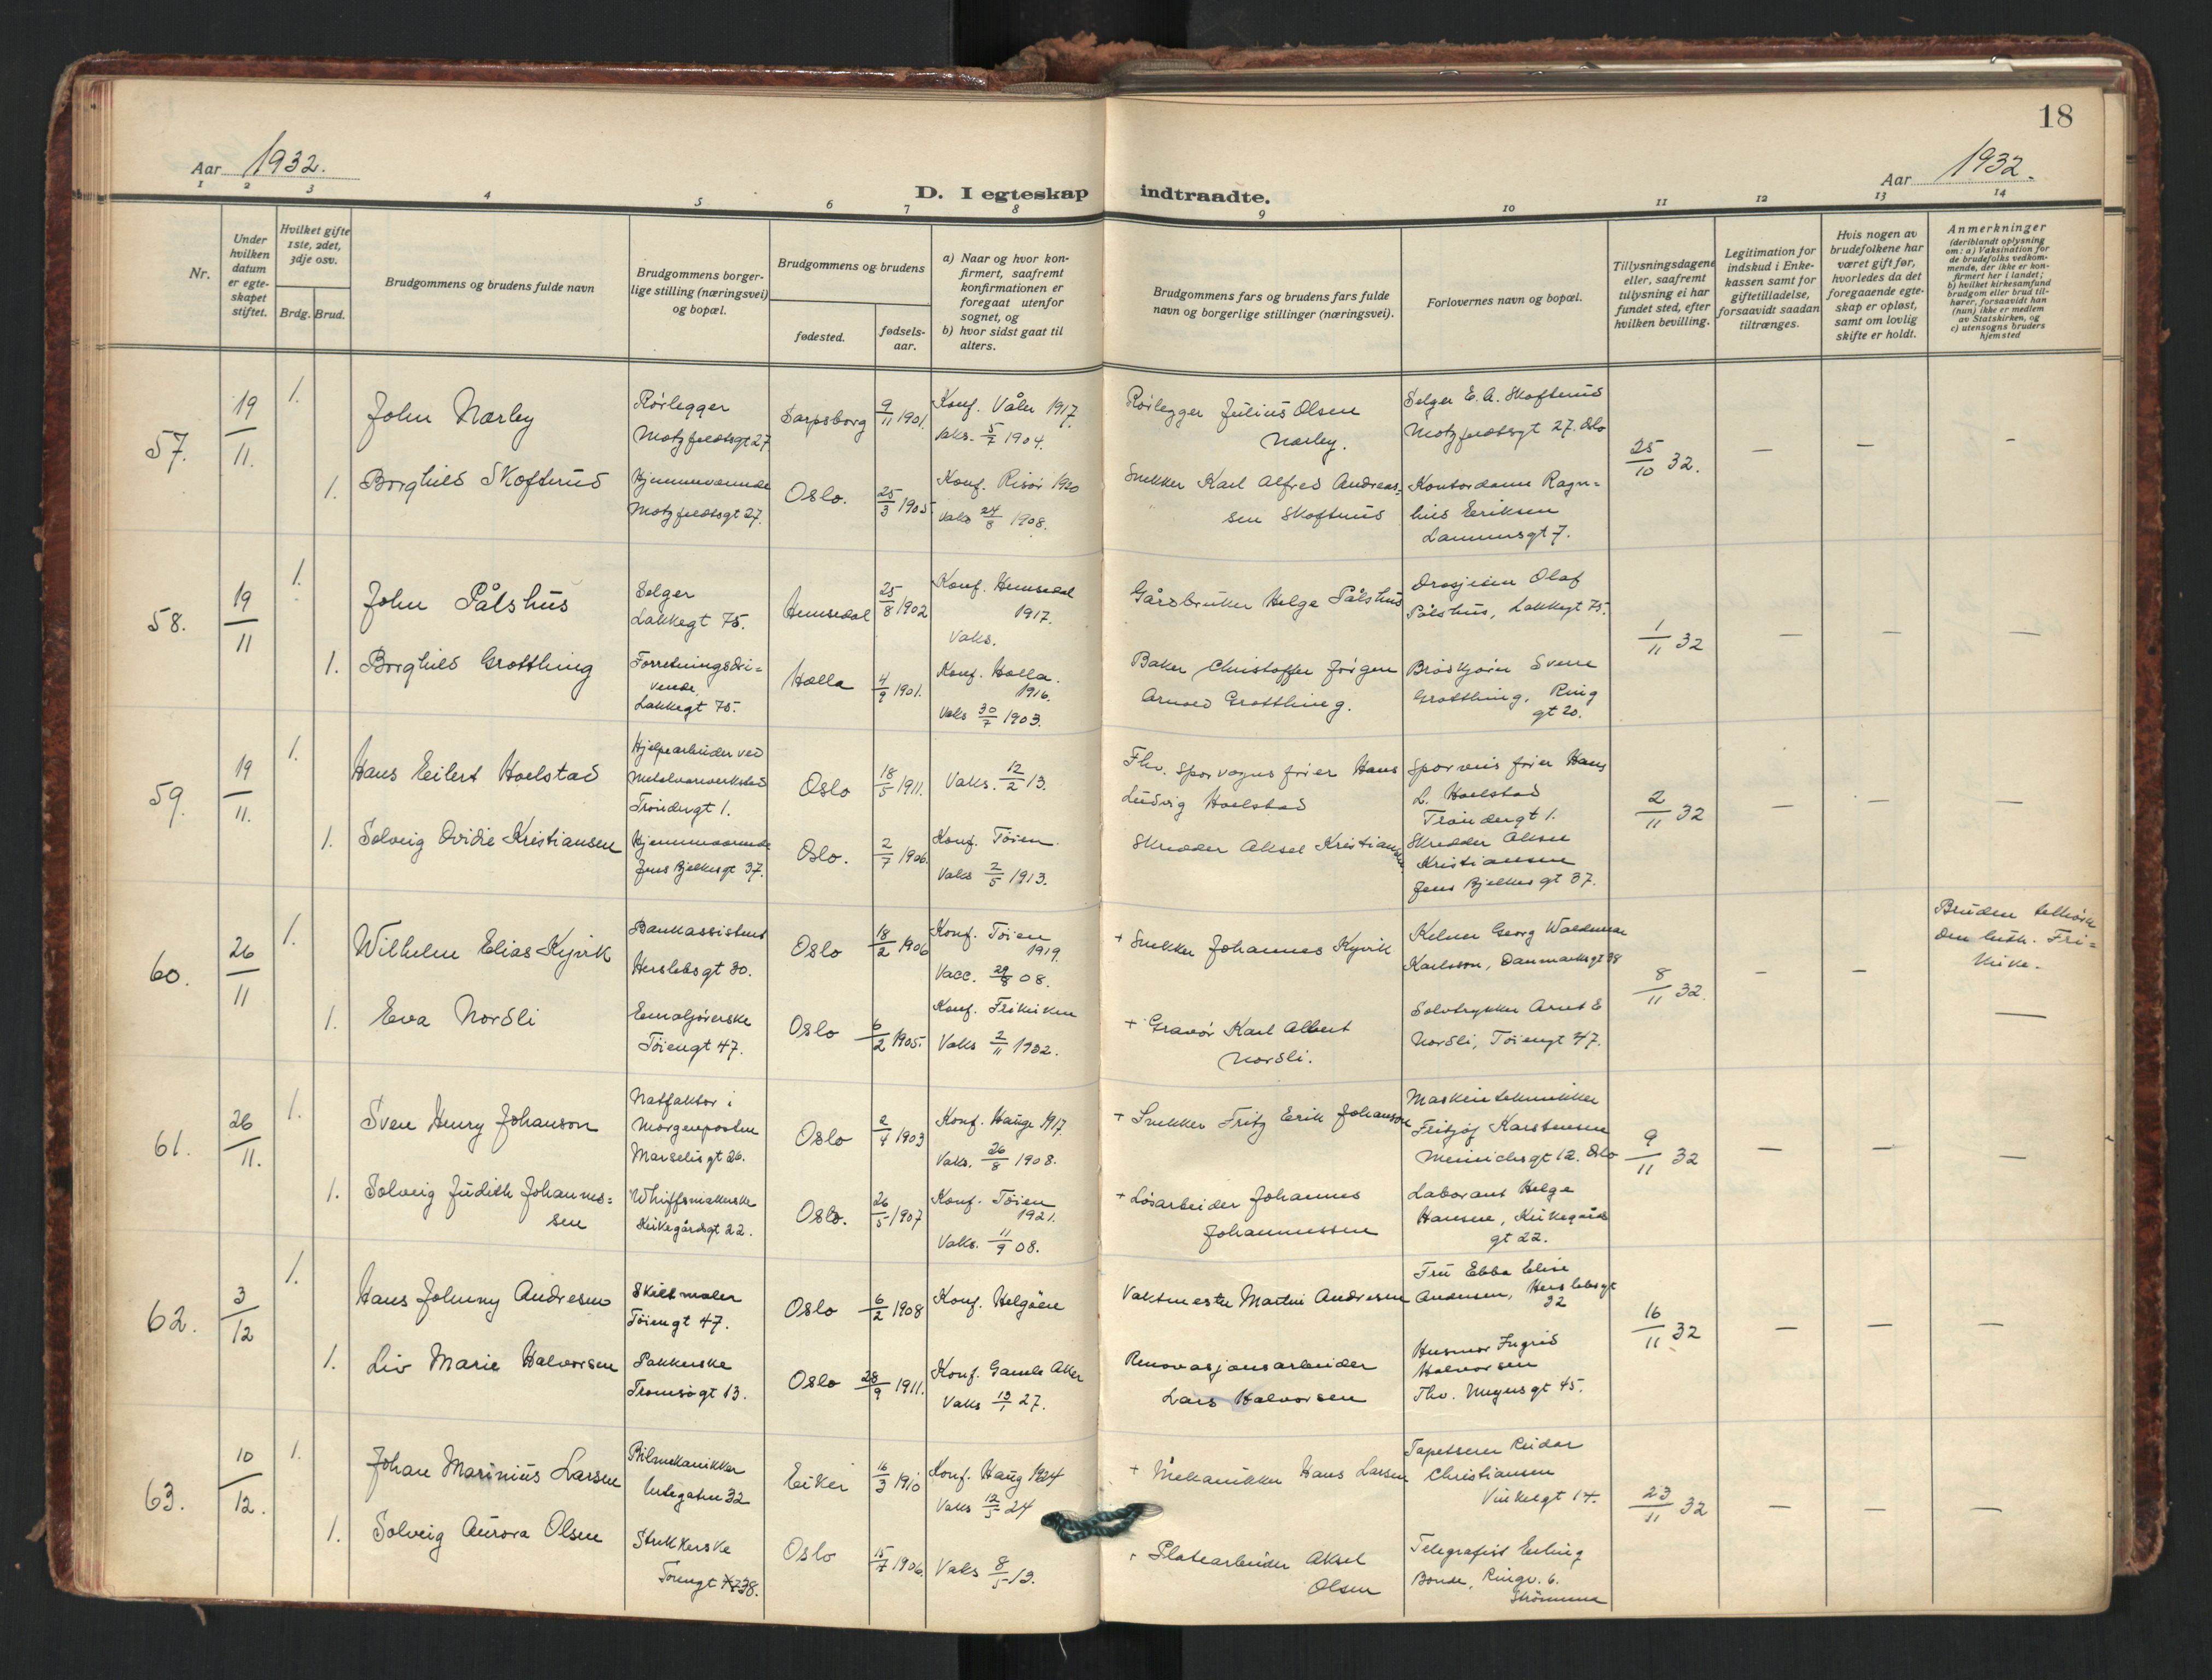 18
Aar 1932.
Aar 1932.
D. I egteskap indtraadte.
1 2 3 4 5 6 7 8 9 10 11 12 13 14
Nr.
Under hvilken datum er egteskapet stiftet.
Hvilket gifte 1ste, 2det, 3dje osv.
Brdg. Brud.
Brudgommens og brudens fulde navn
Brudgommens borgerlige stilling (næringsvei) og bopæl.
Brudgommens og brudens
fødested.
fødselsaar.
a) Naar og hvor konfirmert, saafremt konfirmationen er foregaat utenfor sognet, og
b) hvor sidst gaat til alters.
Brudgommens fars og brudens fars fulde navn og borgerlige stillinger (næringsvei).
Forlovernes navn og bopæl.
Tillysningsdagene eller, saafremt tillysning ei har fundet sted, efter hvilken bevilling.
Legitimation for indskud i Enkekassen samt for giftetilladelse, forsaavidt saadan tiltrænges.
Hvis nogen av brudefolkene har været gift før, hvorledes da det foregaaende egteskap er opløst, samt om lovlig skifte er holdt.
Anmerkninger
(deriblandt oplysning om: a) Vaksination for de brudefolks vedkommende, der ikke er konfirmert her i landet; b) hvilket kirkesamfund brudgom eller brud tilhører, forsaavidt han (hun) ikke er medlem av Statskirken, og c) utensogns bruders hjemsted
57. 19/11. 1. John Narby
Rørlegger
Motzfeldtsgt 27.
Sarpsborg 9/11 1901.
Konf. Våler 1917.
Vaks. 5/7 1904.
Rørlegger Julius Olsen
Narby.
Selger E. A. Skofterud
Motzfeldtsgt 27. Oslo
25/10 32. — — —
1. Borghild Skofterud
Hjemmeværende
Motzfeldtsgt 27.
Oslo. 25/3 1905
Konf. Risør 1920
Vaks 24/8 1908.
Snekker Karl Alfred Andreas-
sen Skofterud
Kontordame Ragn-
hild Eriksen
gt 7.
58. 19/11 1. John Pålshus
Selger
Lakkegt 75.
Hemsedal 25/8 1902
Konf. Hemsedal
1917.
Vaks.
Gårdbruker Helge Pålshus
Drosjeeier Olaf
Pålshus, Lakkegt 75.
1/11 32 — — —
1. Borghild Grottling
Forretningsdri-
vende.
Lakkegt 75.
Holla 4/9 1901.
Konf. Holla.
1916.
Vaks 30/7 1903.
Baker Christoffer Jørgen
Arnold Grottling.
Brødkjører Svere
Grottling, Ring
gt 20.
59. 19/11. 1. Hans Eilert Hoelstad
Hjelpearbeider ved
Metalvareverksted
Trøndergt 1.
Oslo 18/5 1911.
Vaks. 12/2 13.
Fhv. sporvognsfører Hans
Ludvig Hoelstad
Sporveisfører Hans
L. Hoelstad
Trøndergt 1.
2/11 32 — — —
1. Solveig Ovidie Kristiansen
Hjemmeværende
Jens Bjelkesgt 37.
Oslo. 2/7 1906.
Konf. Tøien.
Vaks 2/5 1913.
Skredder Aksel Kristiansen
Skredder Aksel
Kristiansen
Jens Bjelkes gt 37.
60. 26/11 1. Wilhelm Elias Kyvik
Bankassistent
Herslebsgt 30.
Oslo 18/2 1906
Konf. Tøien
1919.
Vacc. 29/8 08.
+ Snekker Johannes Kyvik
Kelner Georg Waldemar
Karlsson, Danmarksgt 38
8/11 32. — —
Bruden tilhører
den luth. Fri-
kirke.
1. Eva Nordli
Emaljørerske
Tøiengt 47.
Oslo 6/2 1905.
Konf. Frikirken
Vaks 2/11 1902.
+ Gravør Karl Albert
Nordli.
Sølvtrykker Arnt E
Nordli, Tøiengt 47.
—
61. 26/11. 1. Sven Henry Johanson
Natfaktor i
Morgenposten
Marselisgt 26.
Oslo 2/4 1903
Konf. Hauge 1917.
Vaks. 26/8 1908.
+ Snekker Fritz Erik Johanson
Maskintekniker
Fritjof Karstensen
Meinichsgt 12. Oslo
9/11 32 — — —
1. Solveig Judith Johannes-
sen
Whiffsmakerske
Kirkegårdsgt 22.
Oslo. 26/5 1907
Konf. Tøien
1921.
Vaks. 11/9 08.
+ Løsarbeider Johannes
Johannessen
Laborant Helge
Hansen, Kirkegårds
gt 22.
62. 3/12 1. Hans Johnny Andresen
Skiltmaler
Tøiengt 47.
Oslo 6/2 1908
Konf. Helgøen
Vaktmester Martin Andresen
Fru Ebba Elise
Andersen, Herslebsgt
32
16/11 32 — — —
1. Liv Marie Halvorsen
Pakkerske
Tromsøgt 13.
Oslo 28/9 1911.
Konf. Gamle Aker
Vaks 13/1 27.
Renovasjonsarbeider
Lars Halvorsen
Husmor Ingrid
Halvorsen
Thv. Meyersgt 45.
63. 10/12. 1. Johan Marinius Larsen
Bilmekanikker
Urtegaten 32
Eiker 16/3 1910
Konf. Haug 1924
Vaks 12/5 24
+ Mekaniker Hans Larsen
Tapetserer Reidar
Christiansen
Vinkelgt 14.
23/11 32 — — —
1. Solveig Aurora Olsen
Strikkerske
Oslo 15/7 1906.
Vaks 8/5 13.
+ Platearbeider Aksel
Olsen
Telegrafist Erling
Bonde, Ringv. 6.
Strømmen